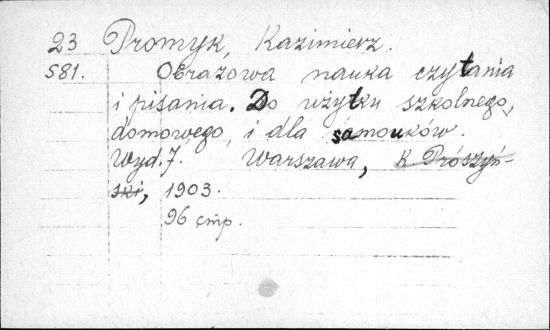 23 Promyk, Kazimierz.
581. Obrazowa nauka czytania
i pisania. Do użytku szkolnego,
domowego, i dla samouków.
Wyd. 7. Warszawa, K Prószyń-
ski, 1903.
96 стр.